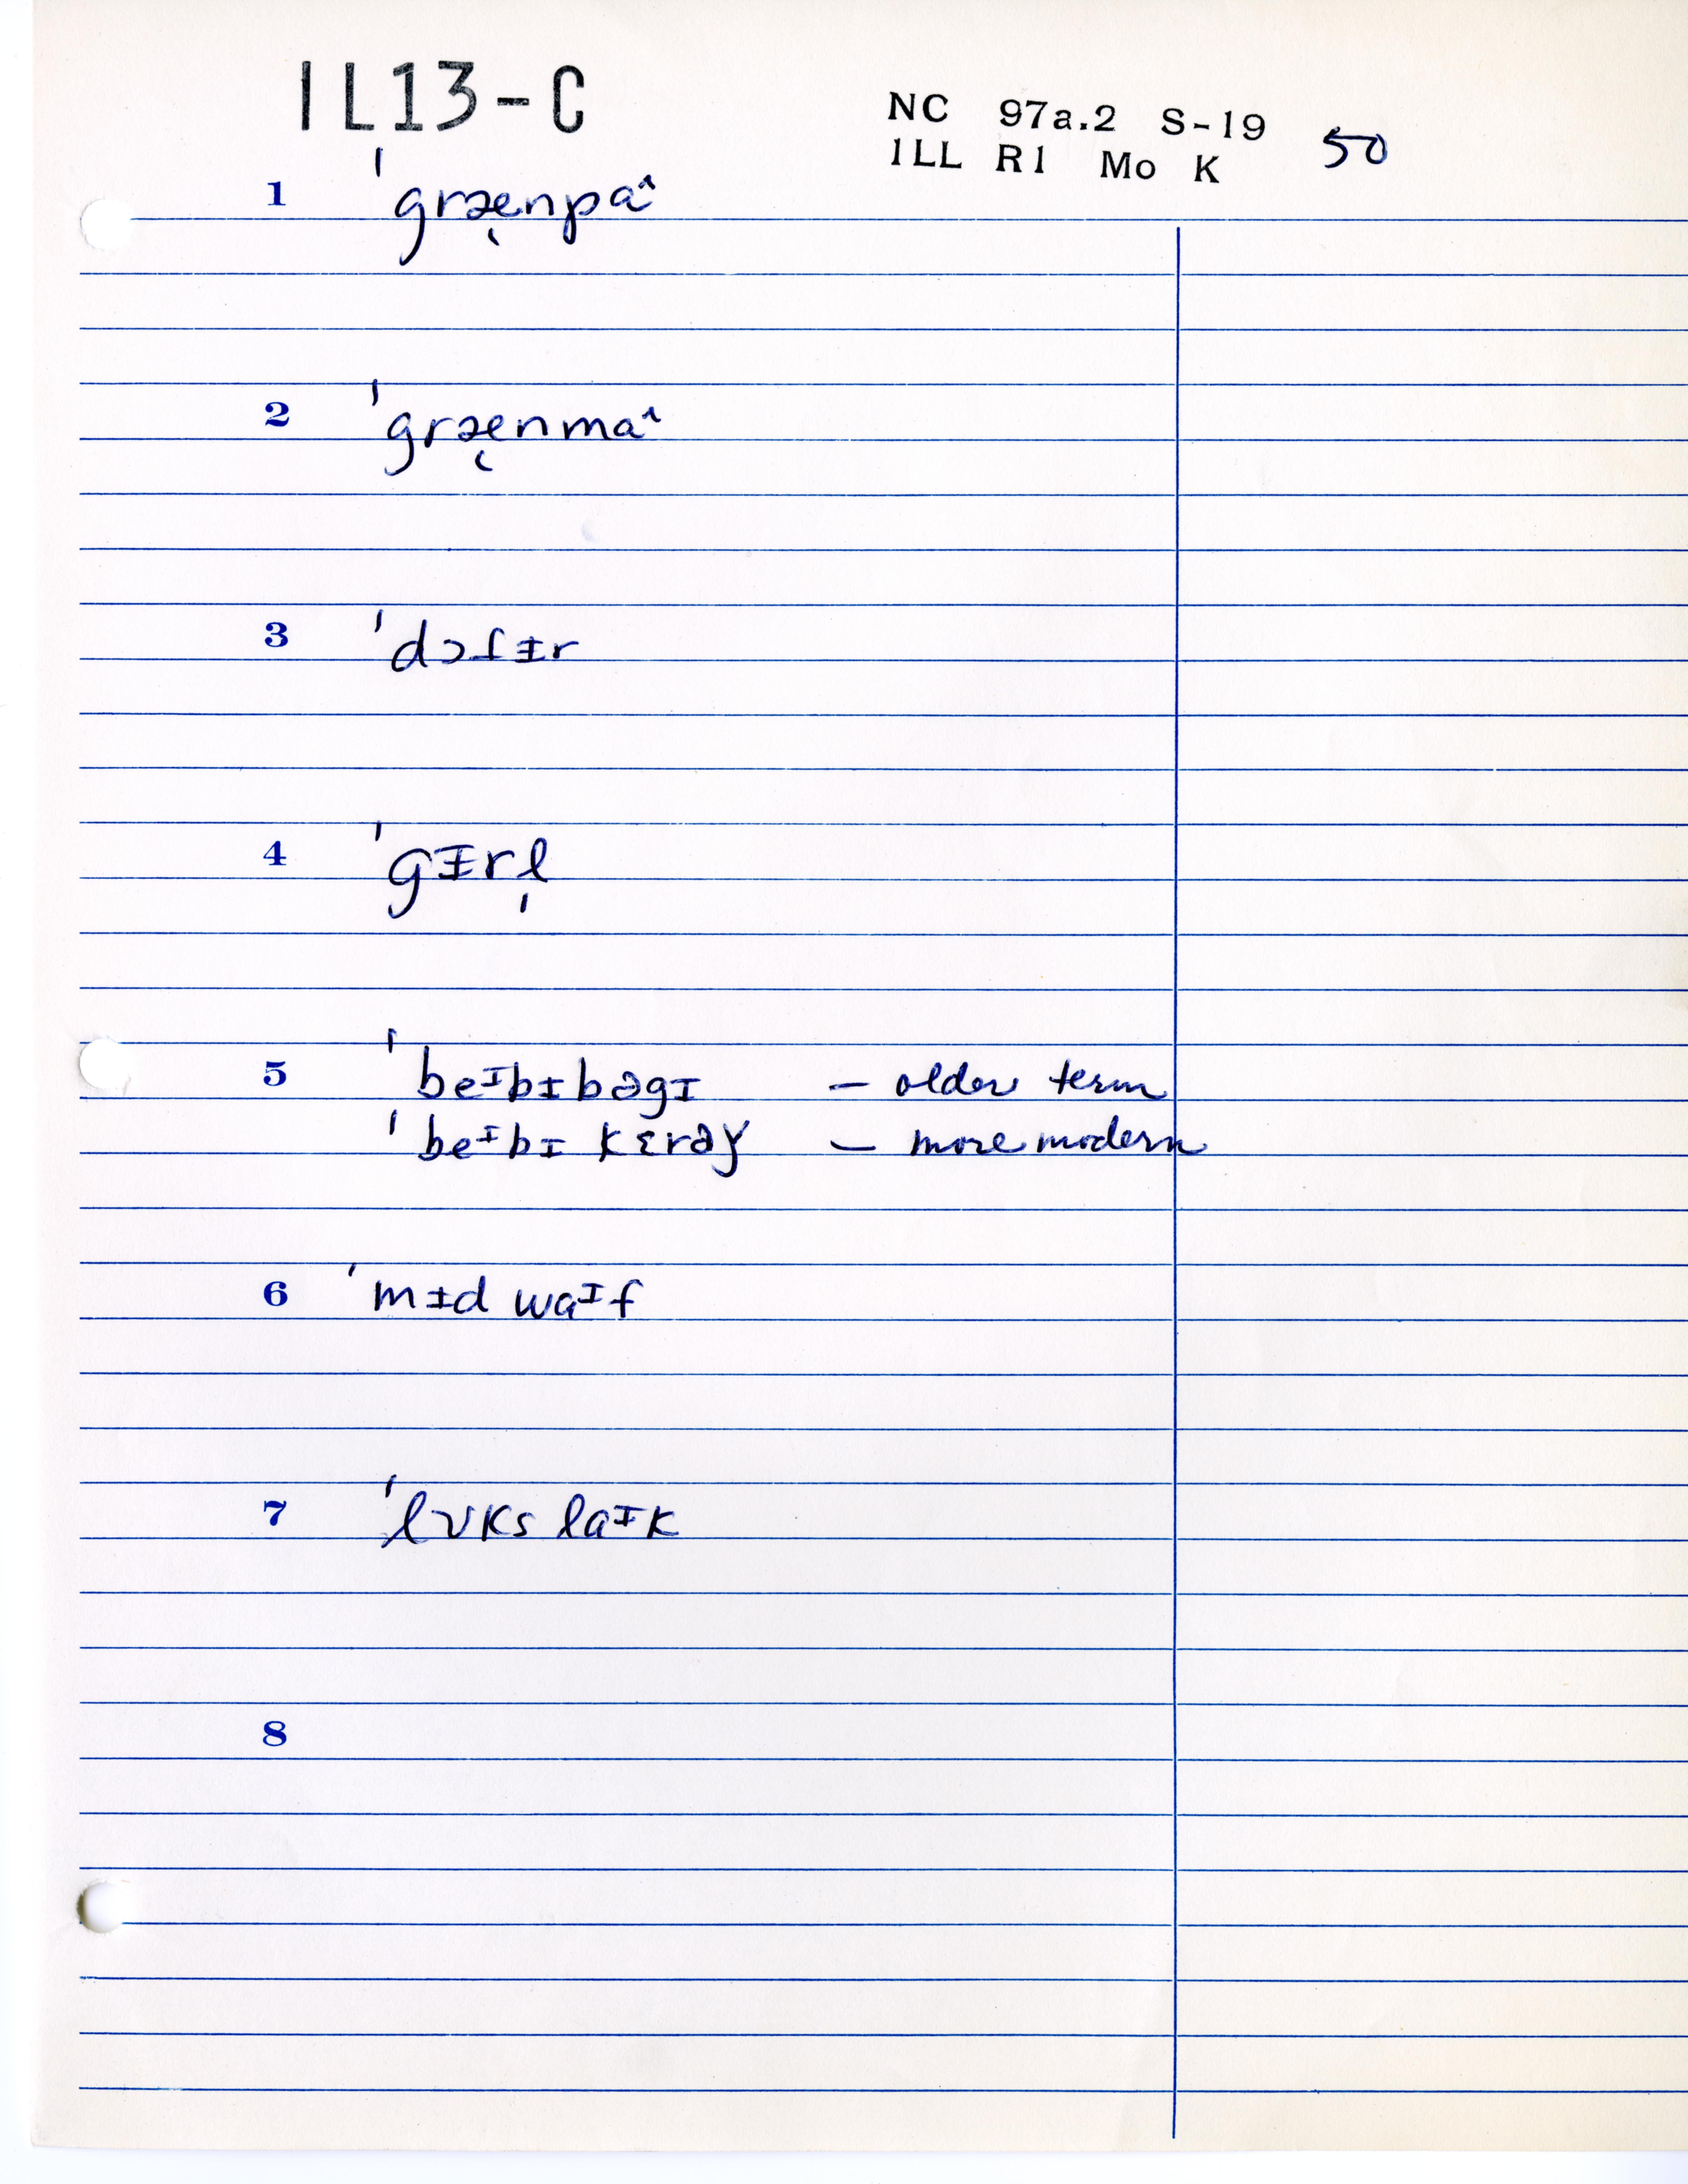 IL13-C
NC 97a.2 S-19
ILL R1 Mo K 50
1 ˈgræ̨npaˆ
2 ˈgræ̨nmaˆ
3 ˈdɔfɪr
4 ˈgɪrl̩
5 ˈbeᶦbɪbəgɪ – older term
ˈbeᶦbɪ kɛrəɣ – more modern
6 ˈmɪd waᶦf
7 ˈlʊks laᶦk
8